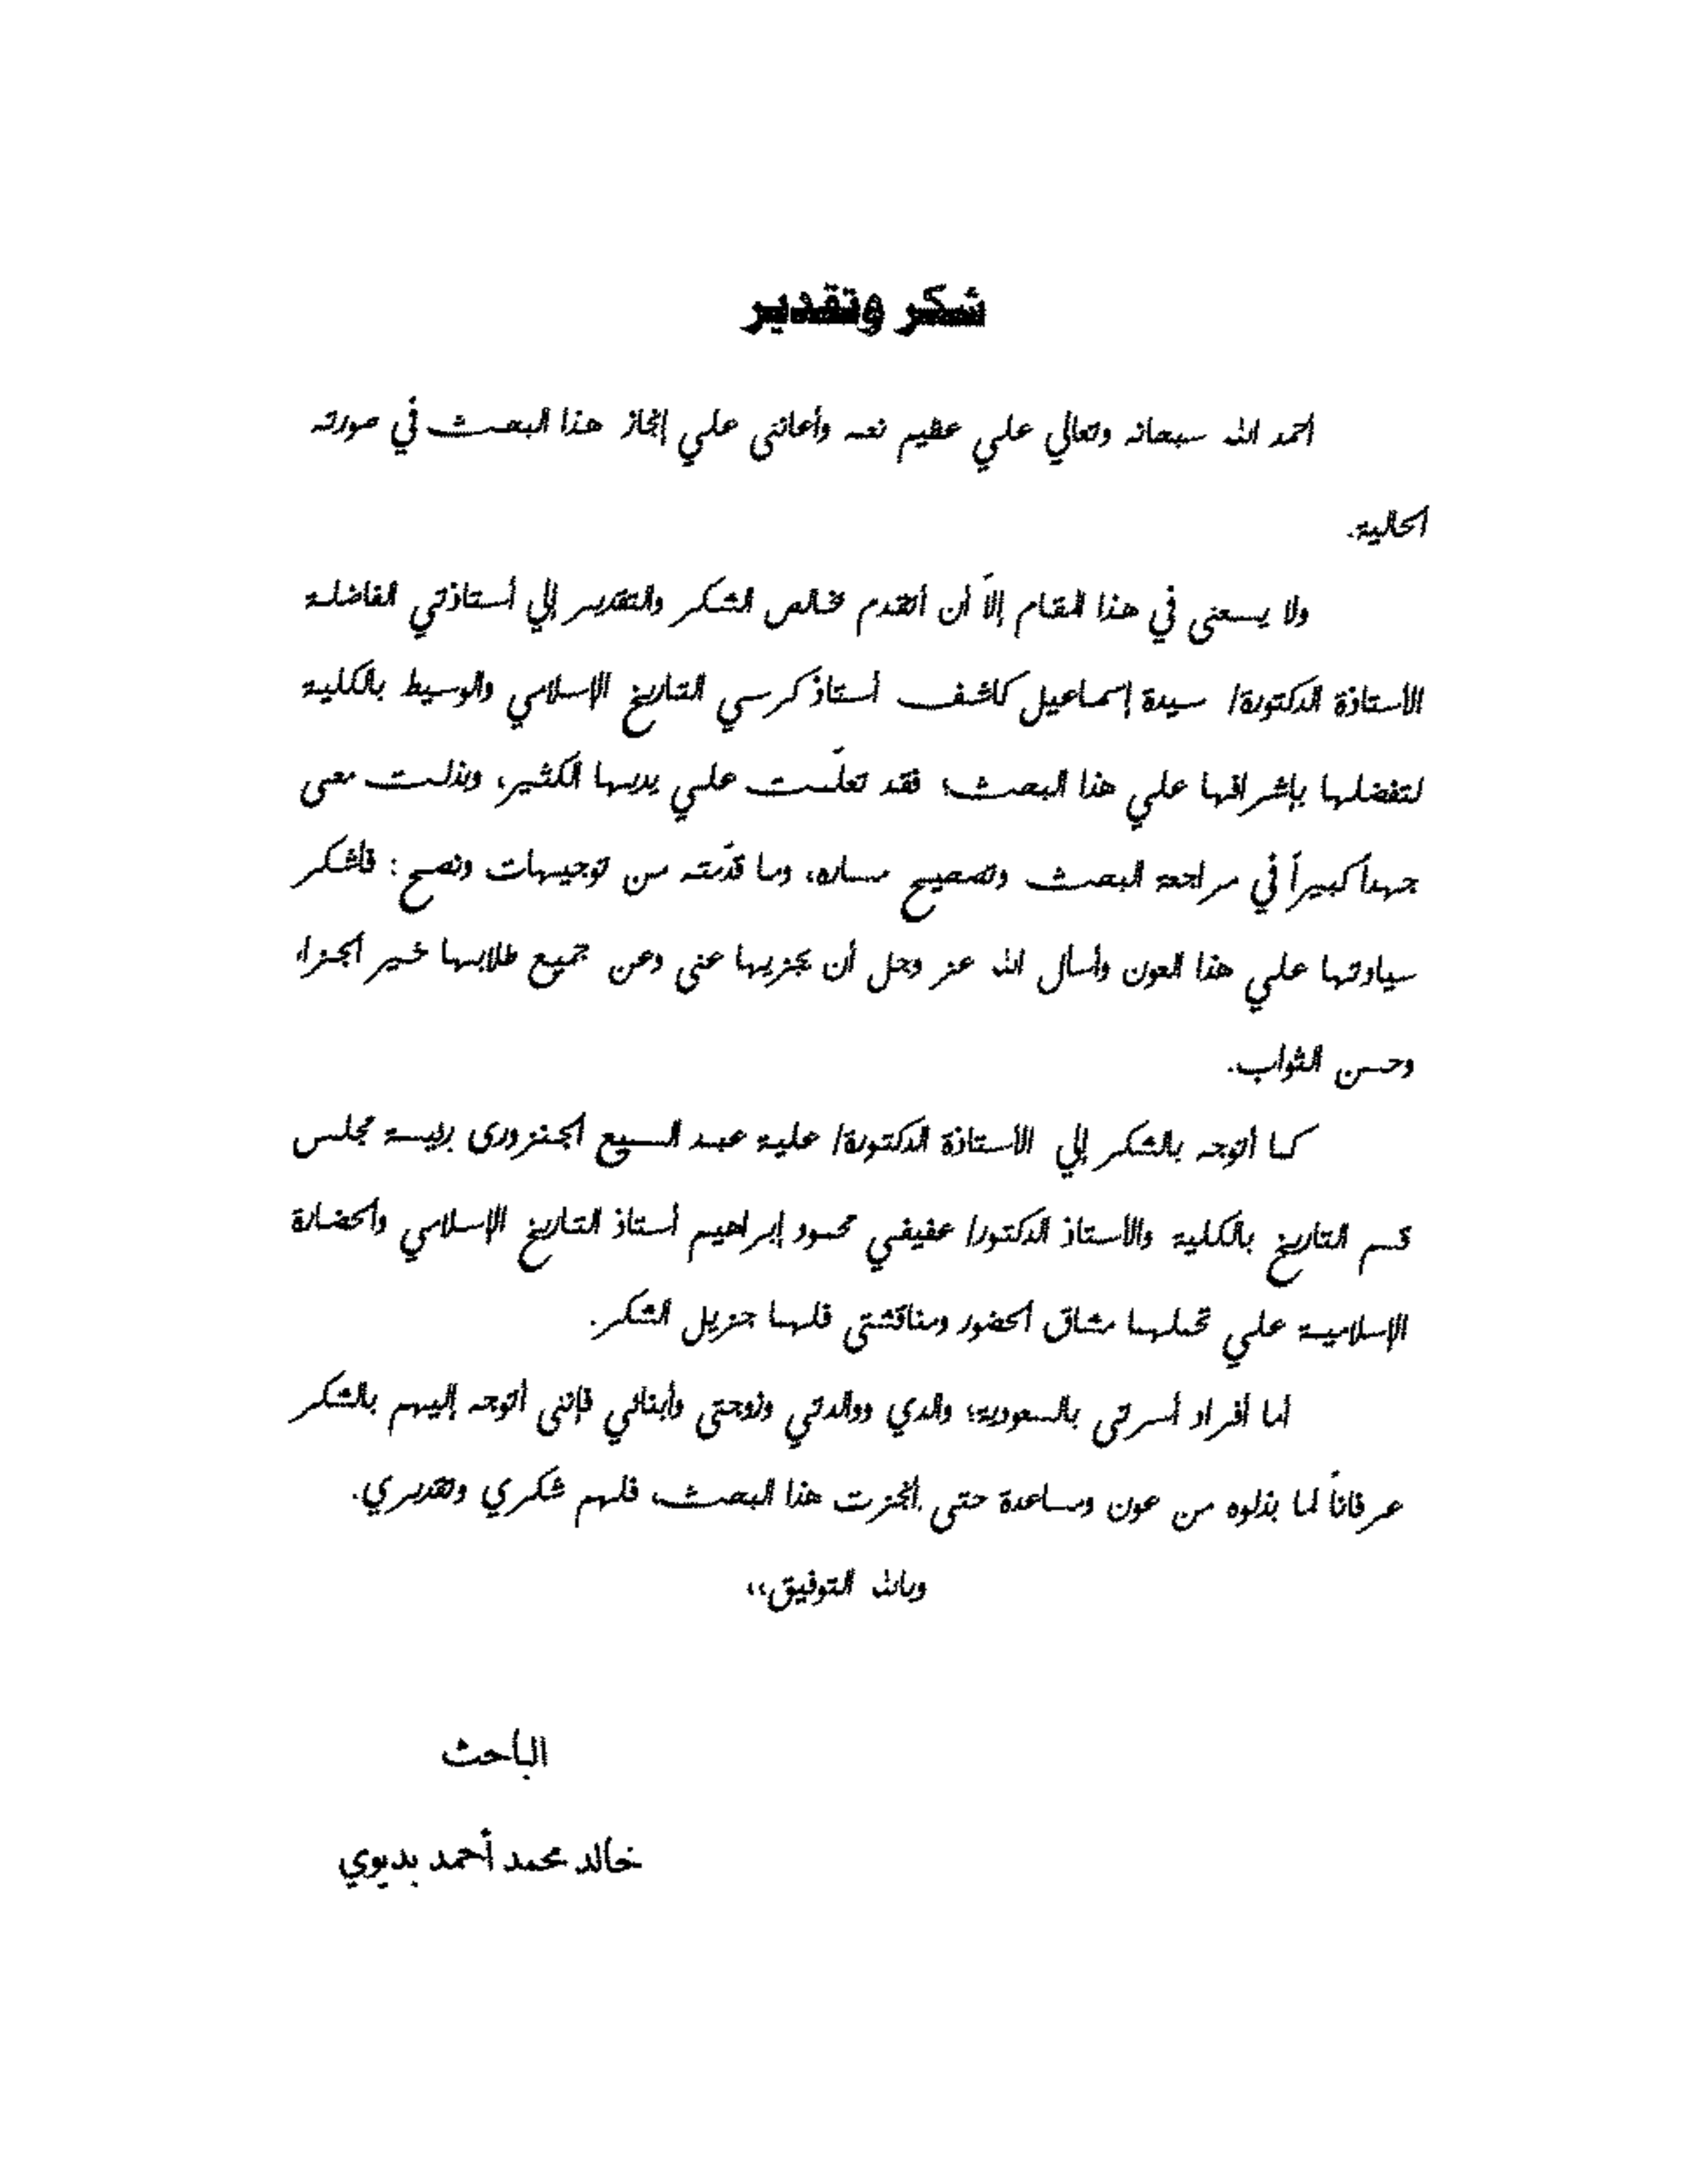 شكر وتقدير
أحمد الله سبحانه وتعالي علي عظيم نعمه وأعانني علي إنجاز هذا البحث في صورته
الحالية.
ولا يسعنى في هذا المقام إلاّ أن أتقدم بخالص الشكر والتقدير إلي أستاذتي الفاضلة
الأستاذة الدكتورة/ سيدة إسماعيل كاشف أستاذ كرسي التاريخ الإسلامي والوسيط بالكلية
لتفضلها بإشرافها علي هذا البحث؛ فقد تعلّمت علي يديها الكثير، وبذلت معى
جهداً كبيراً في مراجعة البحث وتصحيح مساره، وما قدّمته من توجيهات ونصح: فأشكر
سيادتها علي هذا العون وأسأل الله عز وجل أن يجزيها عنى وعن جميع طلابها خير الجزاء
وحسن الثواب.
كما أتوجه بالشكر إلي الأستاذة الدكتورة/ علية عبد السميع الجنزورى رئيسة مجلس
قسم التاريخ بالكلية والأستاذ الدكتور/ عفيفي محمود إبراهيم أستاذ التاريخ الإسلامي والحضارة
الإسلامية علي تحملهما مشاق الحضور ومناقشتى فلهما جزيل الشكر.
أما أفراد أسرتى بالسعودية؛ والدي ووالدتي وزوجتى وأبنائي فإننى أتوجه إليهم بالشكر
عرفاناً لما بذلوه من عون ومساعدة حتى أنجزت هذا البحث، فلهم شكري وتقديري.
وبالله التوفيق،،
الباحث
خالد محمد أحمد بديوي